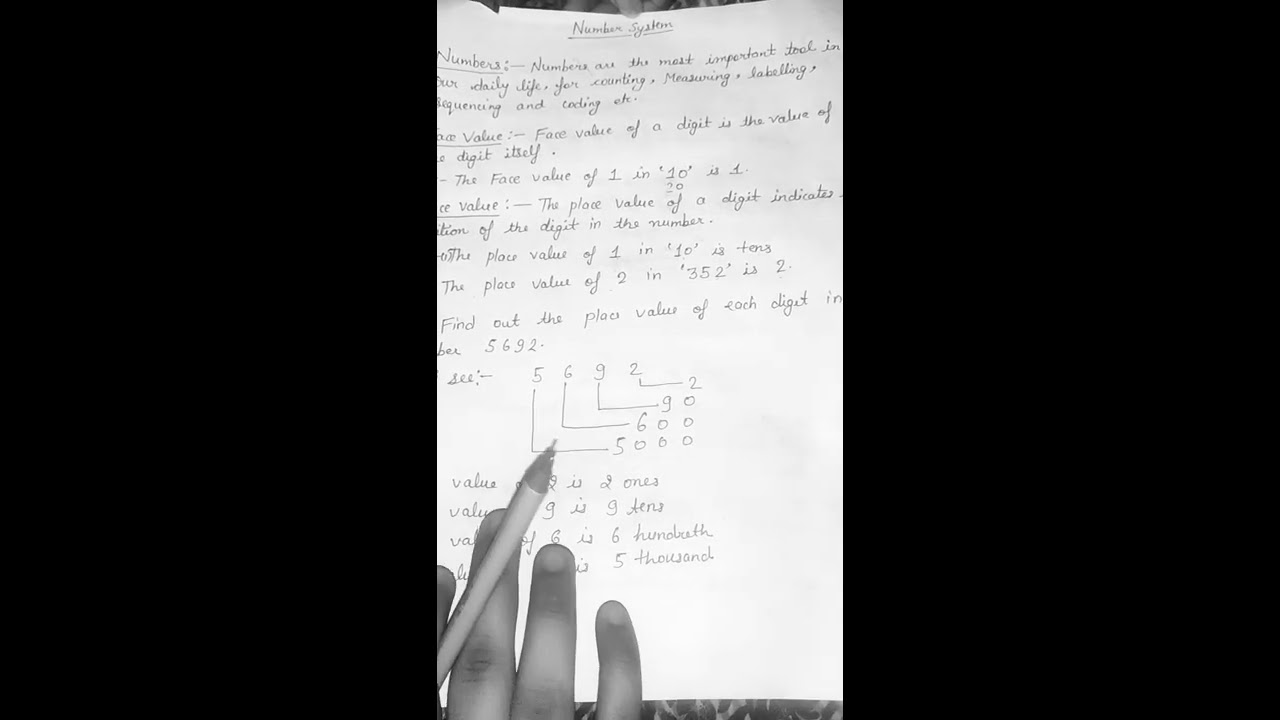 Number System
Numbers:- Numbers are the most important tool in
our daily life, for counting, Measuring, labelling,
sequencing and coding etc.
ace Value:- Face value of a digit is the value of
e digit itself.
- The Face value of 1 in '10' is 1.
20
ce value:- The place value of a digit indicates
ition of the digit in the number.
The place value of 1 in '10' is tens
The place value of 2 in '352' is 2.
Find out the place value of each diget in
ber 5692.
see:-
5 6 9 2
2
9 0
6 0 0
5 0 0 0
value 2 is 2 ones
valu 9 is 9 tens
va of 6 is 6 hundreth
is 5 thousand